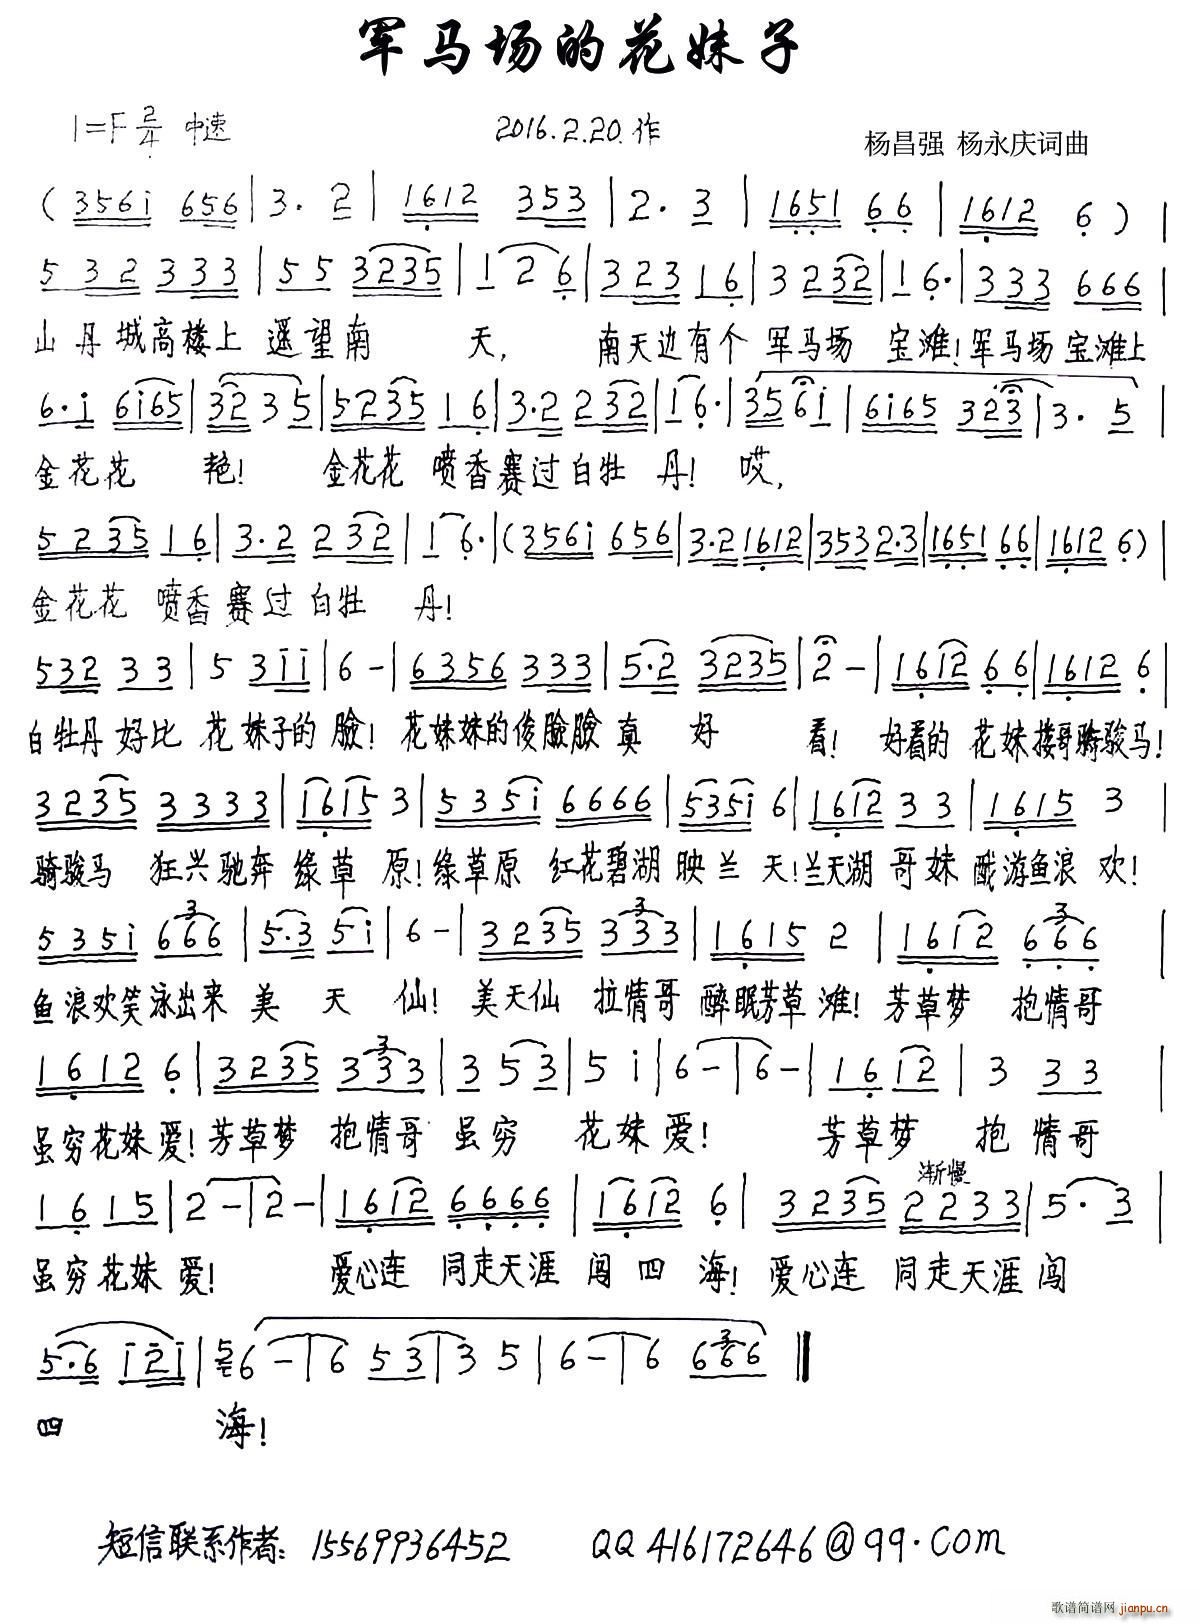 军马场的花妹子
1=F 2/4 中速 2016.2.20.作 杨昌强 杨永庆词曲
( 3561 656 | 3. 2 | 1612 353 | 2. 3 | 1651 66 | 1612 6 ) |
5 32 333 | 55 3235 | 1 2 6 | 323 16 | 3 232 | 1 6. | 333 666 |
山丹城高楼上 遥望南 天, 南天边有个 军马场 宝滩! 军马场宝滩上
6.1 6165 | 3235 | 5235 16 | 3.2 232 | 1 6. | 3561 | 6165 323 | 3. 5 |
金花花 艳! 金花花 喷香赛过白牡 丹! 哎,
5235 16 | 3.2 232 | 1 6. | (3561 656 | 3.2 1612 | 353 2.3 | 1651 66 | 1612 6) |
金花花 喷香赛过白牡 丹!
532 33 | 5 311 | 6 - | 6356 333 | 5.2 3235 | 2 - | 1612 66 | 1612 6 |
白牡丹好比 花妹子的 脸! 花妹妹的俊脸脸真 好 看! 好看的 花妹搂哥骑骏马!
3235 3333 | 1615 3 | 5351 6666 | 5351 6 | 1612 33 | 1615 3 |
骑骏马 狂兴驰奔 绿草 原! 绿草原 红花碧湖映兰 天! 兰天湖 哥妹 酣游鱼浪 欢!
5351 666 | 5.3 51 | 6 - | 3235 333 | 1615 2 | 1612 666 |
鱼浪欢笑泳出来 美 天 仙! 美天仙 拉情哥 醉眠芳草 滩! 芳草梦 抱情哥
1612 6 | 3235 333 | 3 53 | 5 1 | 6 - | 6 - | 16 12 | 3 33 |
虽穷花妹 爱! 芳草梦 抱情哥 虽穷 花妹 爱! 芳草梦 抱情哥
渐慢
16 15 | 2 - | 2 - | 1612 6666 | 1612 6 | 3235 2233 | 5. 3 |
虽穷花妹 爱! 爱心连 同走天涯 闯 四 海! 爱心连 同走天涯 闯
5.6 121 | 5 6 - | 6 53 | 3 5 | 6 - | 6 666 ‖
四 海!
短信联系作者: 15569936452 QQ416172646@qq.com
歌谱简谱网
jianpu.cn